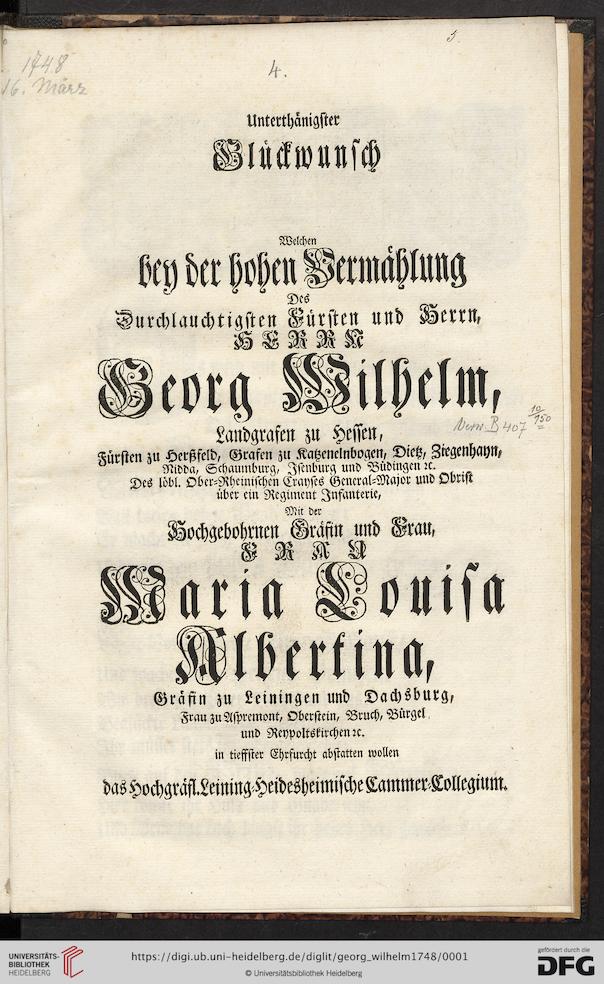 1748
16. März
4.
Unterthänigster
Glückwunsch
Welchen
bey der hohen Vermählung
Des
Durchlauchtigsten Fürsten und Herrn,
HERRN
Georg Wilhelm,
Landgrafen zu Hessen,
Fürsten zu Herßfeld, Grafen zu Katzenelnbogen, Dietz, Ziegenhayn,
Nidda, Schaumburg, Isenburg und Büdingen ꝛc.
Des löbl. Ober-Rheinischen Crayses General-Major und Obrist
über ein Regiment Infanterie,
Mit der
Hochgebohrnen Gräfin und Frau,
FRAU
Maria Louisa
Albertina,
Gräfin zu Leiningen und Dachsburg,
Frau zu Aspremont, Oberstein, Bruch, Bürgel
und Reypoltskirchen ꝛc.
in tieffster Ehrfurcht abstatten wollen
das Hochgräfl. Leining-Heidesheimische Cammer-Collegium.
B 407
UNIVERSITÄTS-
BIBLIOTHEK
HEIDELBERG
https://digi.ub.uni-heidelberg.de/diglit/georg_wilhelm1748/0001
© Universitätsbibliothek Heidelberg
gefördert durch die
DFG